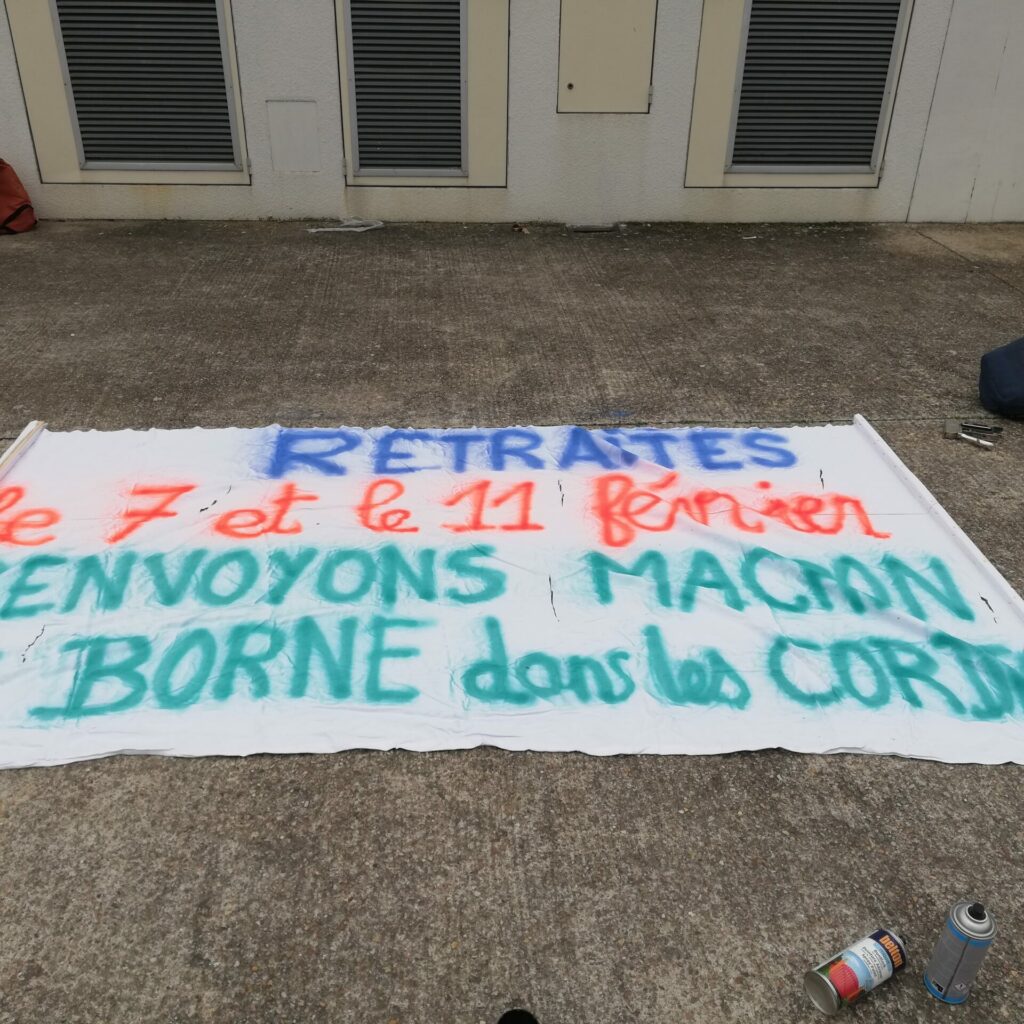 RETRAITES
le 7 et le 11 février
RENVOYONS MACRON
BORNE dans les CORDES
belton